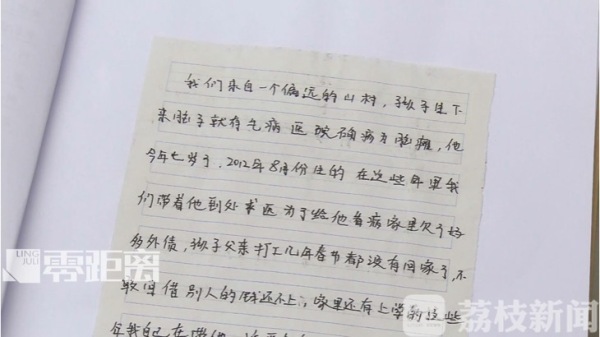 我们来自一个偏远的山村，孩子生下
来脑子就有毛病医院确病为脑瘫，他
今年七岁了，2012年8月份生的 在这些年里我
们带着他到处求医为了给他看病家里欠了好
多外债，孩子父亲打工几年春节都没有回家了，不
敢回借别人的钱还不上，家里还有上学的这些
年我自己在带他
LING JULI
零距离
荔枝新闻